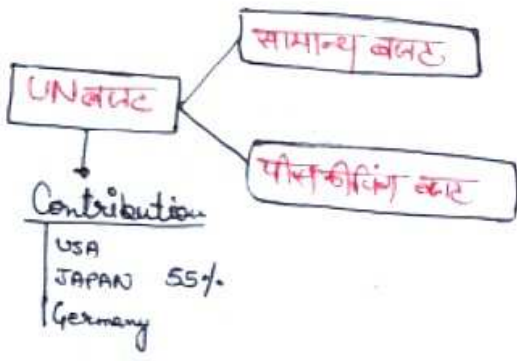 सामान्य बजट
UN बजट
पीसकीपिंग बजट
Contribution
USA
JAPAN 55%
Germany